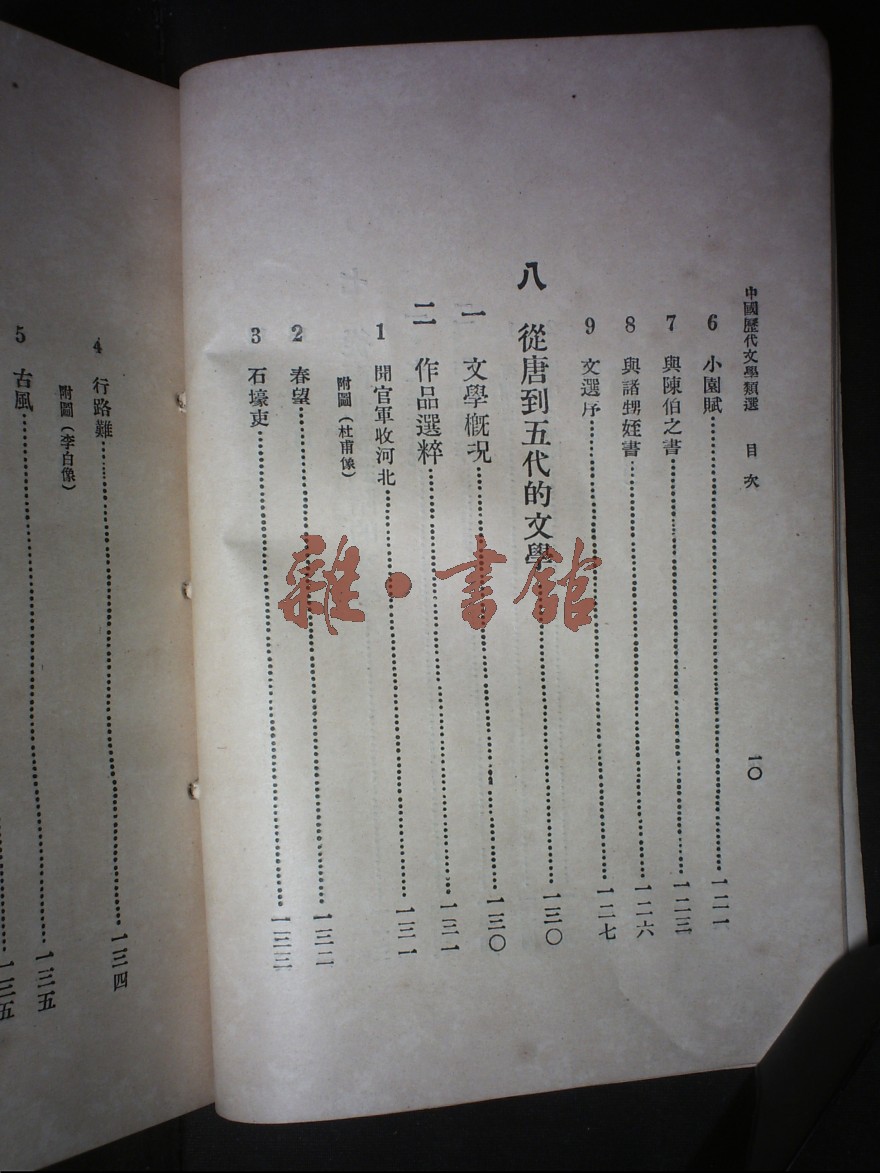 中國歷代文學類選　目次
一〇
6 小園賦……一二一
7 與陳伯之書……一二三
8 與諸甥姪書……一二六
9 文選序……一二七
八 從唐到五代的文學……一三〇
一 文學概況……一三〇
二 作品選粹……一三一
1 聞官軍收河北……一三一
附圖（杜甫像）
2 春望……一三二
3 石壕吏……一三三
4 行路難……一三四
附圖（李白像）
5 古風……一三五
一三五
雜·書館